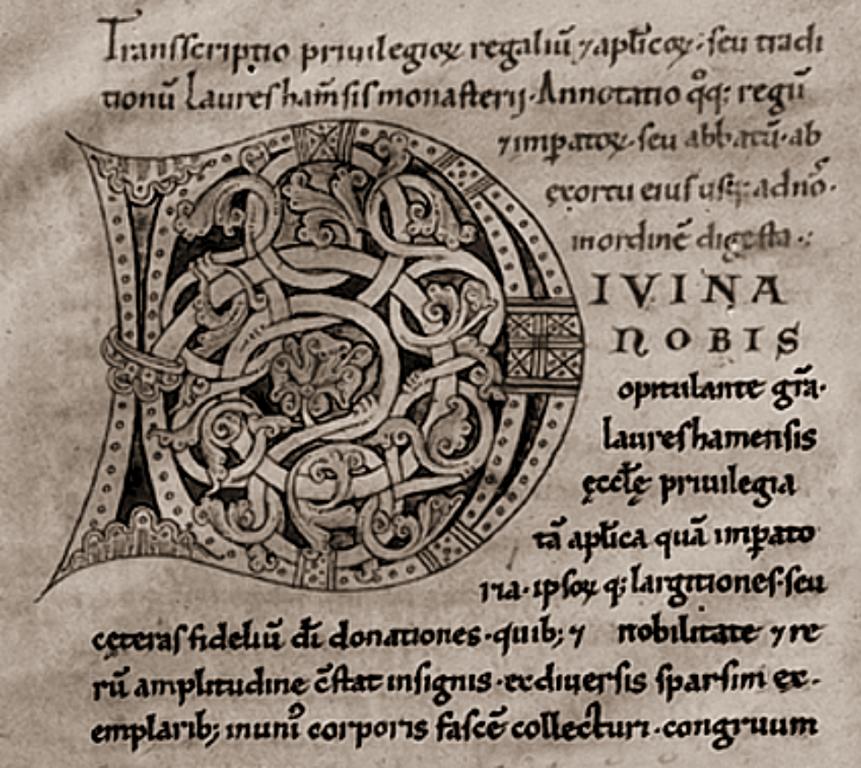 Transscriptio priuilegioꝝ regaliū ⁊ apl̄icoꝝ · seu tradi
tionū Laureshām̄sis monasterij · Annotatio qͦq; regū
⁊ imꝑatoꝝ · seu abbatū · ab
exortu eiususq; adnōs ·
inordinē digesta ·:
DIVINA
NOBIS
opitulante gr̄a ·
laureshamensis
ęccłę priuilegia
tā apl̄ica quā imꝑato
ria · ipsoꝝ q; largitiones · seu
cęteras fideliū dī donationes · quib; ⁊ nobilitate ⁊ re
rū amplitudine c̄stat insignis · ex diuersis sparsim ex ·
emplarib; inunͥ corporis fascē collecturi · congruum